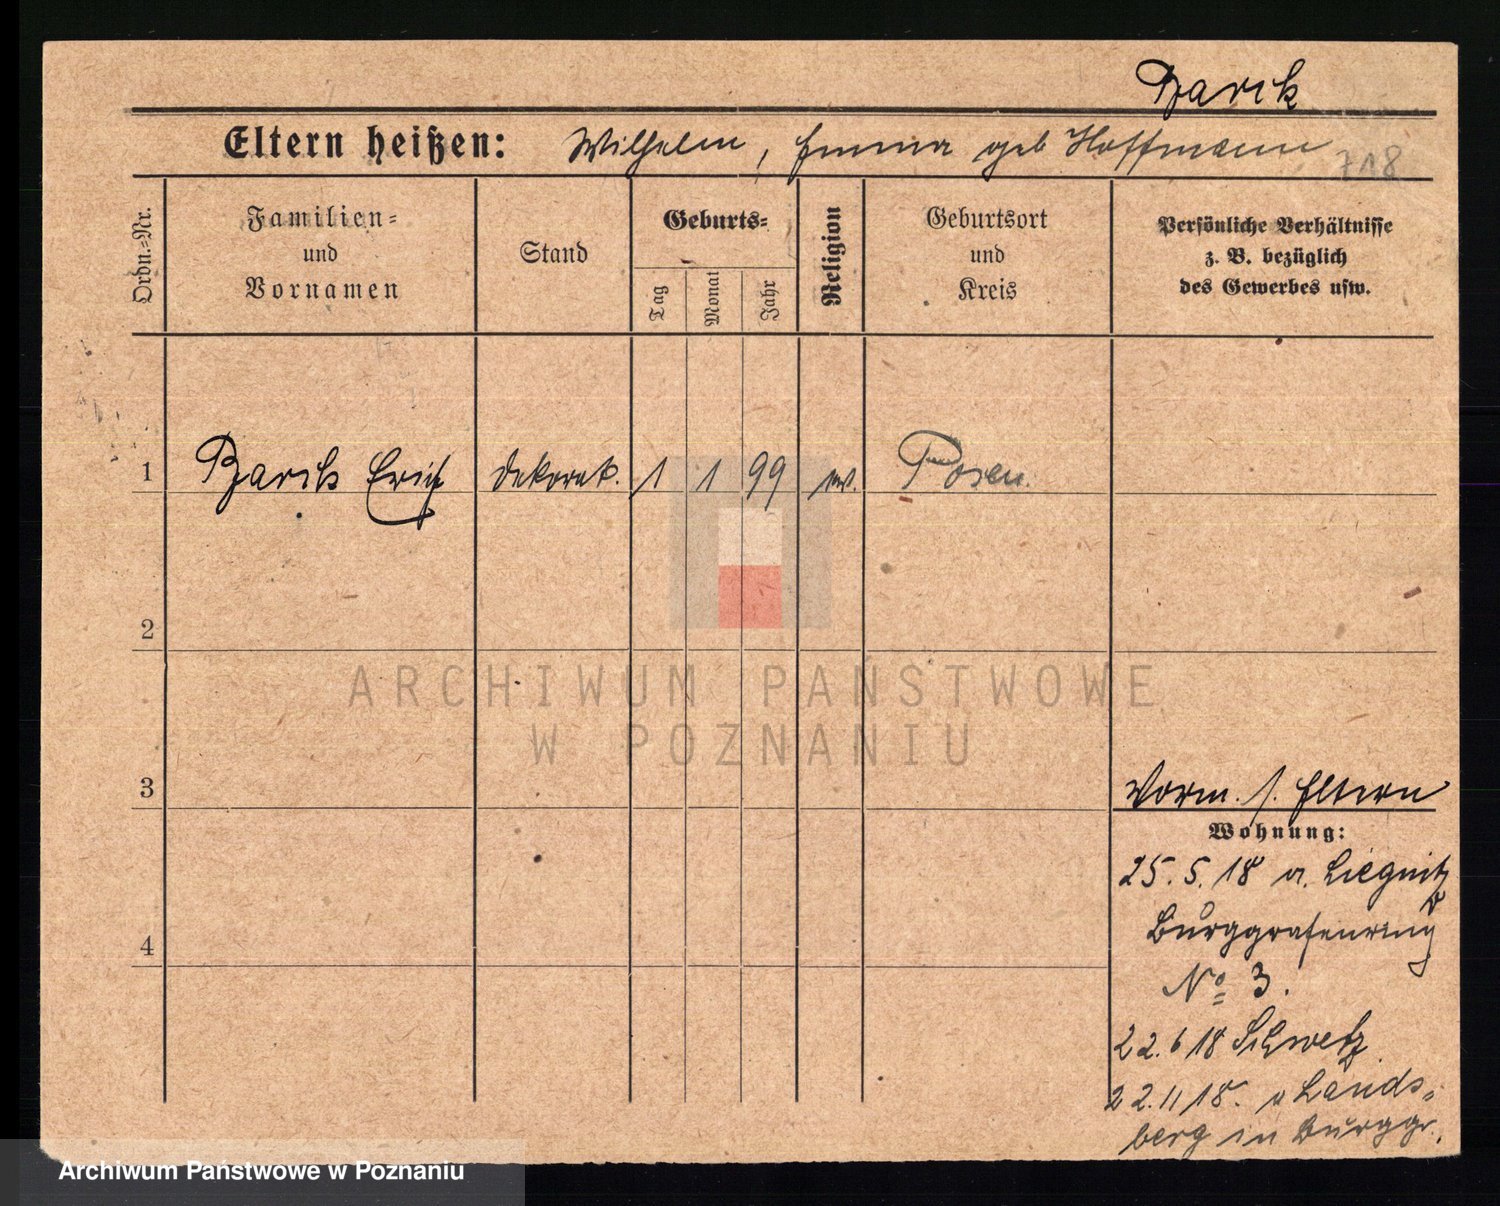 Barik
Eltern heißen: Wilhelm, Emma geb Hoffmann
718
Ordn.=Nr.
Familien=
und
Vornamen
Stand
Geburts=
Tag
Monat
Jahr
Religion
Geburtsort
und
Kreis
Persönliche Verhältnisse
z. B. bezüglich
des Gewerbes usw.
1 Barik Erich Dekorat. 1 1 99 ev. Posen.
2
ARCHIWUM PAŃSTWOWE
W POZNANIU
3
Vorm. s. Eltern
Wohnung:
25. 5. 18 v. Liegnitz
Burggrafenring
No 3.
4
22. 6 18 Schwetz
22. 11 18. v Lands-
berg in Burggr.
Archiwum Państwowe w Poznaniu